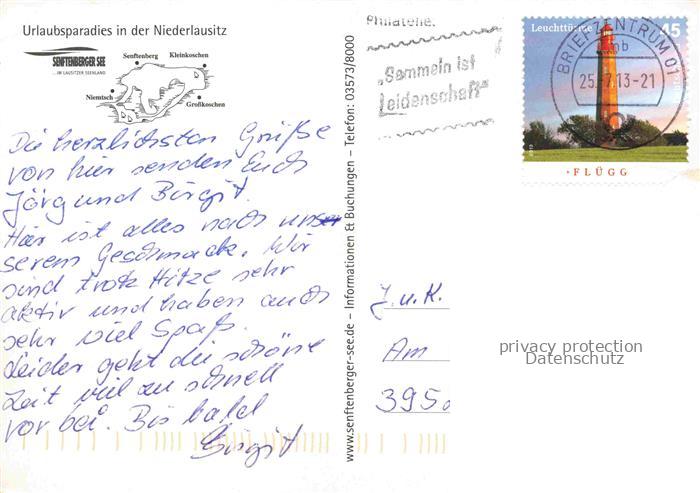 Urlaubsparadies in der Niederlausitz
SENFTENBERGER SEE
... IM LAUSITZER SEENLAND
Senftenberg
Kleinkoschen
Niemtsch
Großkoschen
Die herzlichsten Grüße
von hier senden Euch
Jörg und Birgit.
Hier ist alles nach unser
serem Geschmack. Wir
sind trotz Hitze sehr
aktiv und haben auch
sehr viel Spaß.
Leider geht die schöne
Zeit viel zu schnell
vorbei. Bis bald
Birgit
www.senftenberger-see.de – Informationen & Buchungen – Telefon: 03573/8000
Philatelie.
„Sammeln ist
Leidenschaft"
Leuchttürme
45
BRIEFZENTRUM 01
mb
25.-7.13-21
FLÜGG
J. u. K.
Am
395
privacy protection
Datenschutz